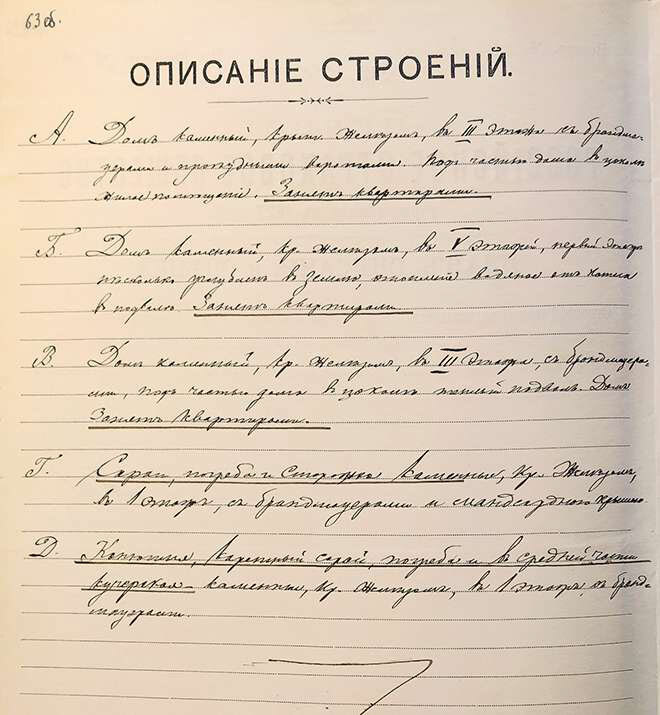 63 об.
ОПИСАНІЕ СТРОЕНІЙ.
А. Домъ каменный, крыт. желѣзомъ, въ III этажа съ брандмау-
ерами и проѣздными воротами. Подъ частью дома въ цоколѣ
жилое помѣщеніе. Занятъ квартирами.
Б. Домъ каменный, кр. желѣзомъ, въ V этажей, первый этажъ
нѣсколько углубленъ въ землю, отопленіе водяное отъ котла
въ подвалѣ. Занятъ квартирами.
В. Домъ каменный, кр. желѣзомъ, въ III этажа, съ брандмауера-
ми, подъ частью дома въ цоколѣ жилой подвалъ. Домъ
Занятъ квартирами.
Г. Сараи, погреба и сторожка каменные, кр. желѣзомъ,
въ 1 этажъ, съ брандмауерами и мансардною крышею
Д. Конюшня, каретный сарай, погреба и въ средней части
кучерская – каменные, кр. желѣзомъ, въ 1 этажъ, съ бранд-
мауерами.